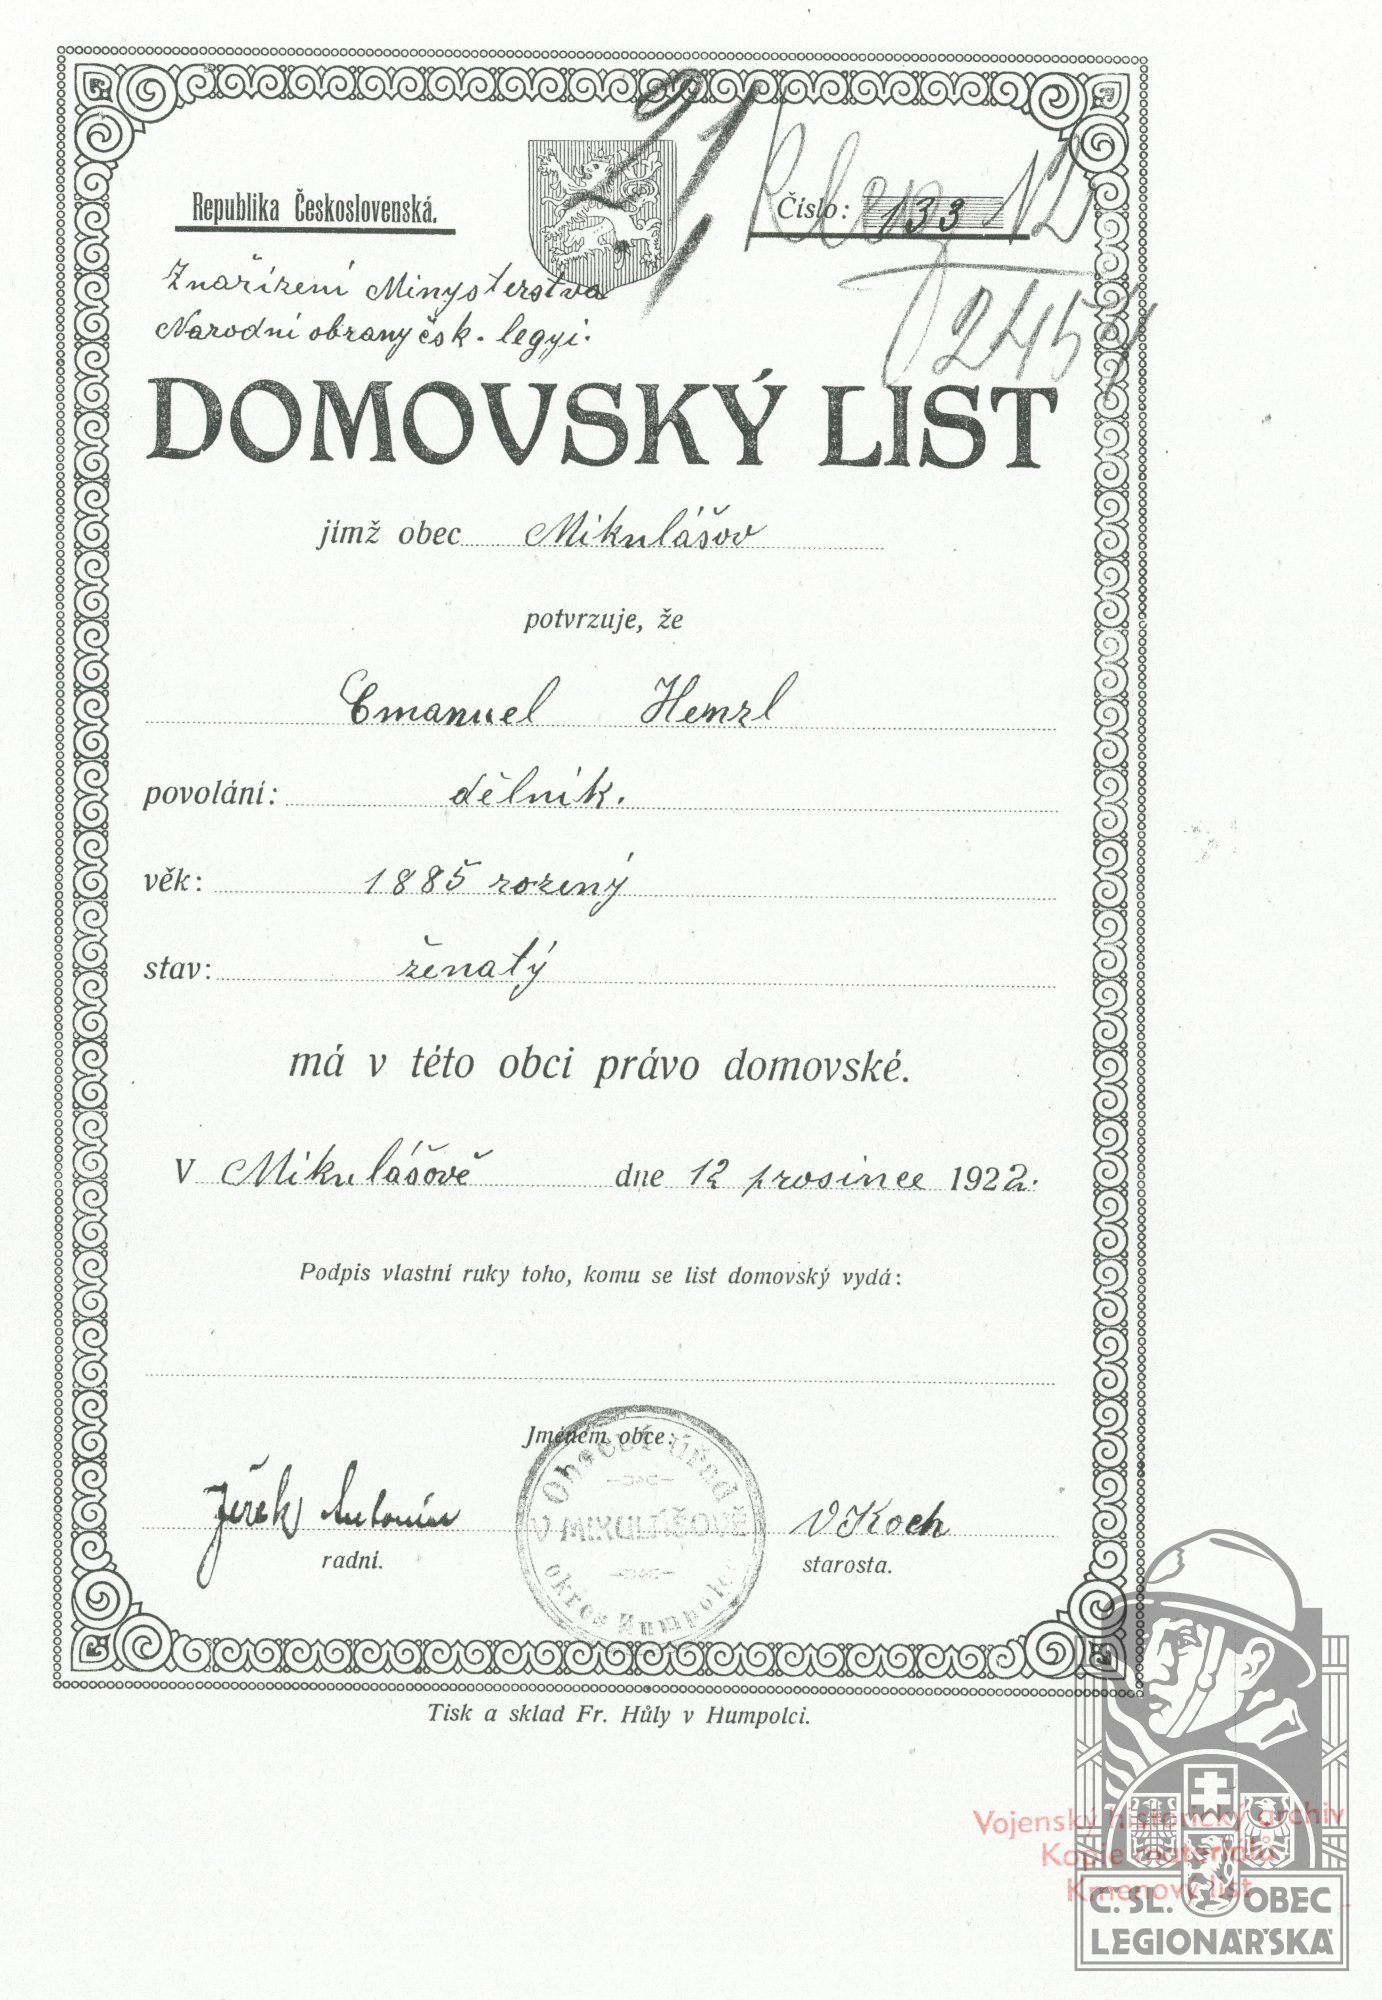 21
Republika Československá.
Číslo: 133
Znařízení Minysterstva
Narodní obrany čsk. legyi.
2454
DOMOVSKÝ LIST
jímž obec Mikulášov
potvrzuje, že
Emanuel Henzl
povolání: dělník.
věk: 1885 rozený
stav: ženatý
má v této obci právo domovské.
V Mikulášově dne 12 prosince 1922.
Podpis vlastní ruky toho, komu se list domovský vydá:
Jménem obce:
Obecní úřad
V MIKULÁŠOVĚ
okres Humpolec
Jeřek Antonín
V Koch
radní.
starosta.
Tisk a sklad Fr. Hůly v Humpolci.
Vojenský historický archiv
Kopie materiálů
Kmenový list
Č. SL. OBEC
LEGIONÁŘSKÁ